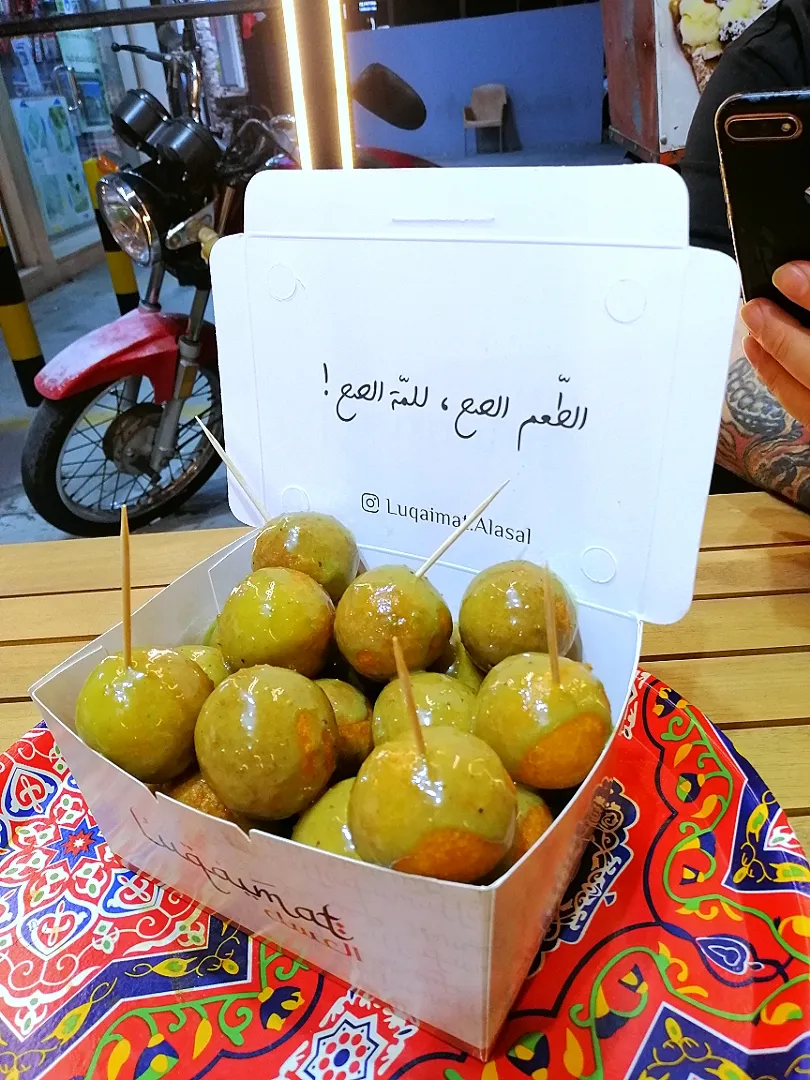 الطّعم الصح، للمّة الصح!
Luqaimat.Alasal
Luqaimat